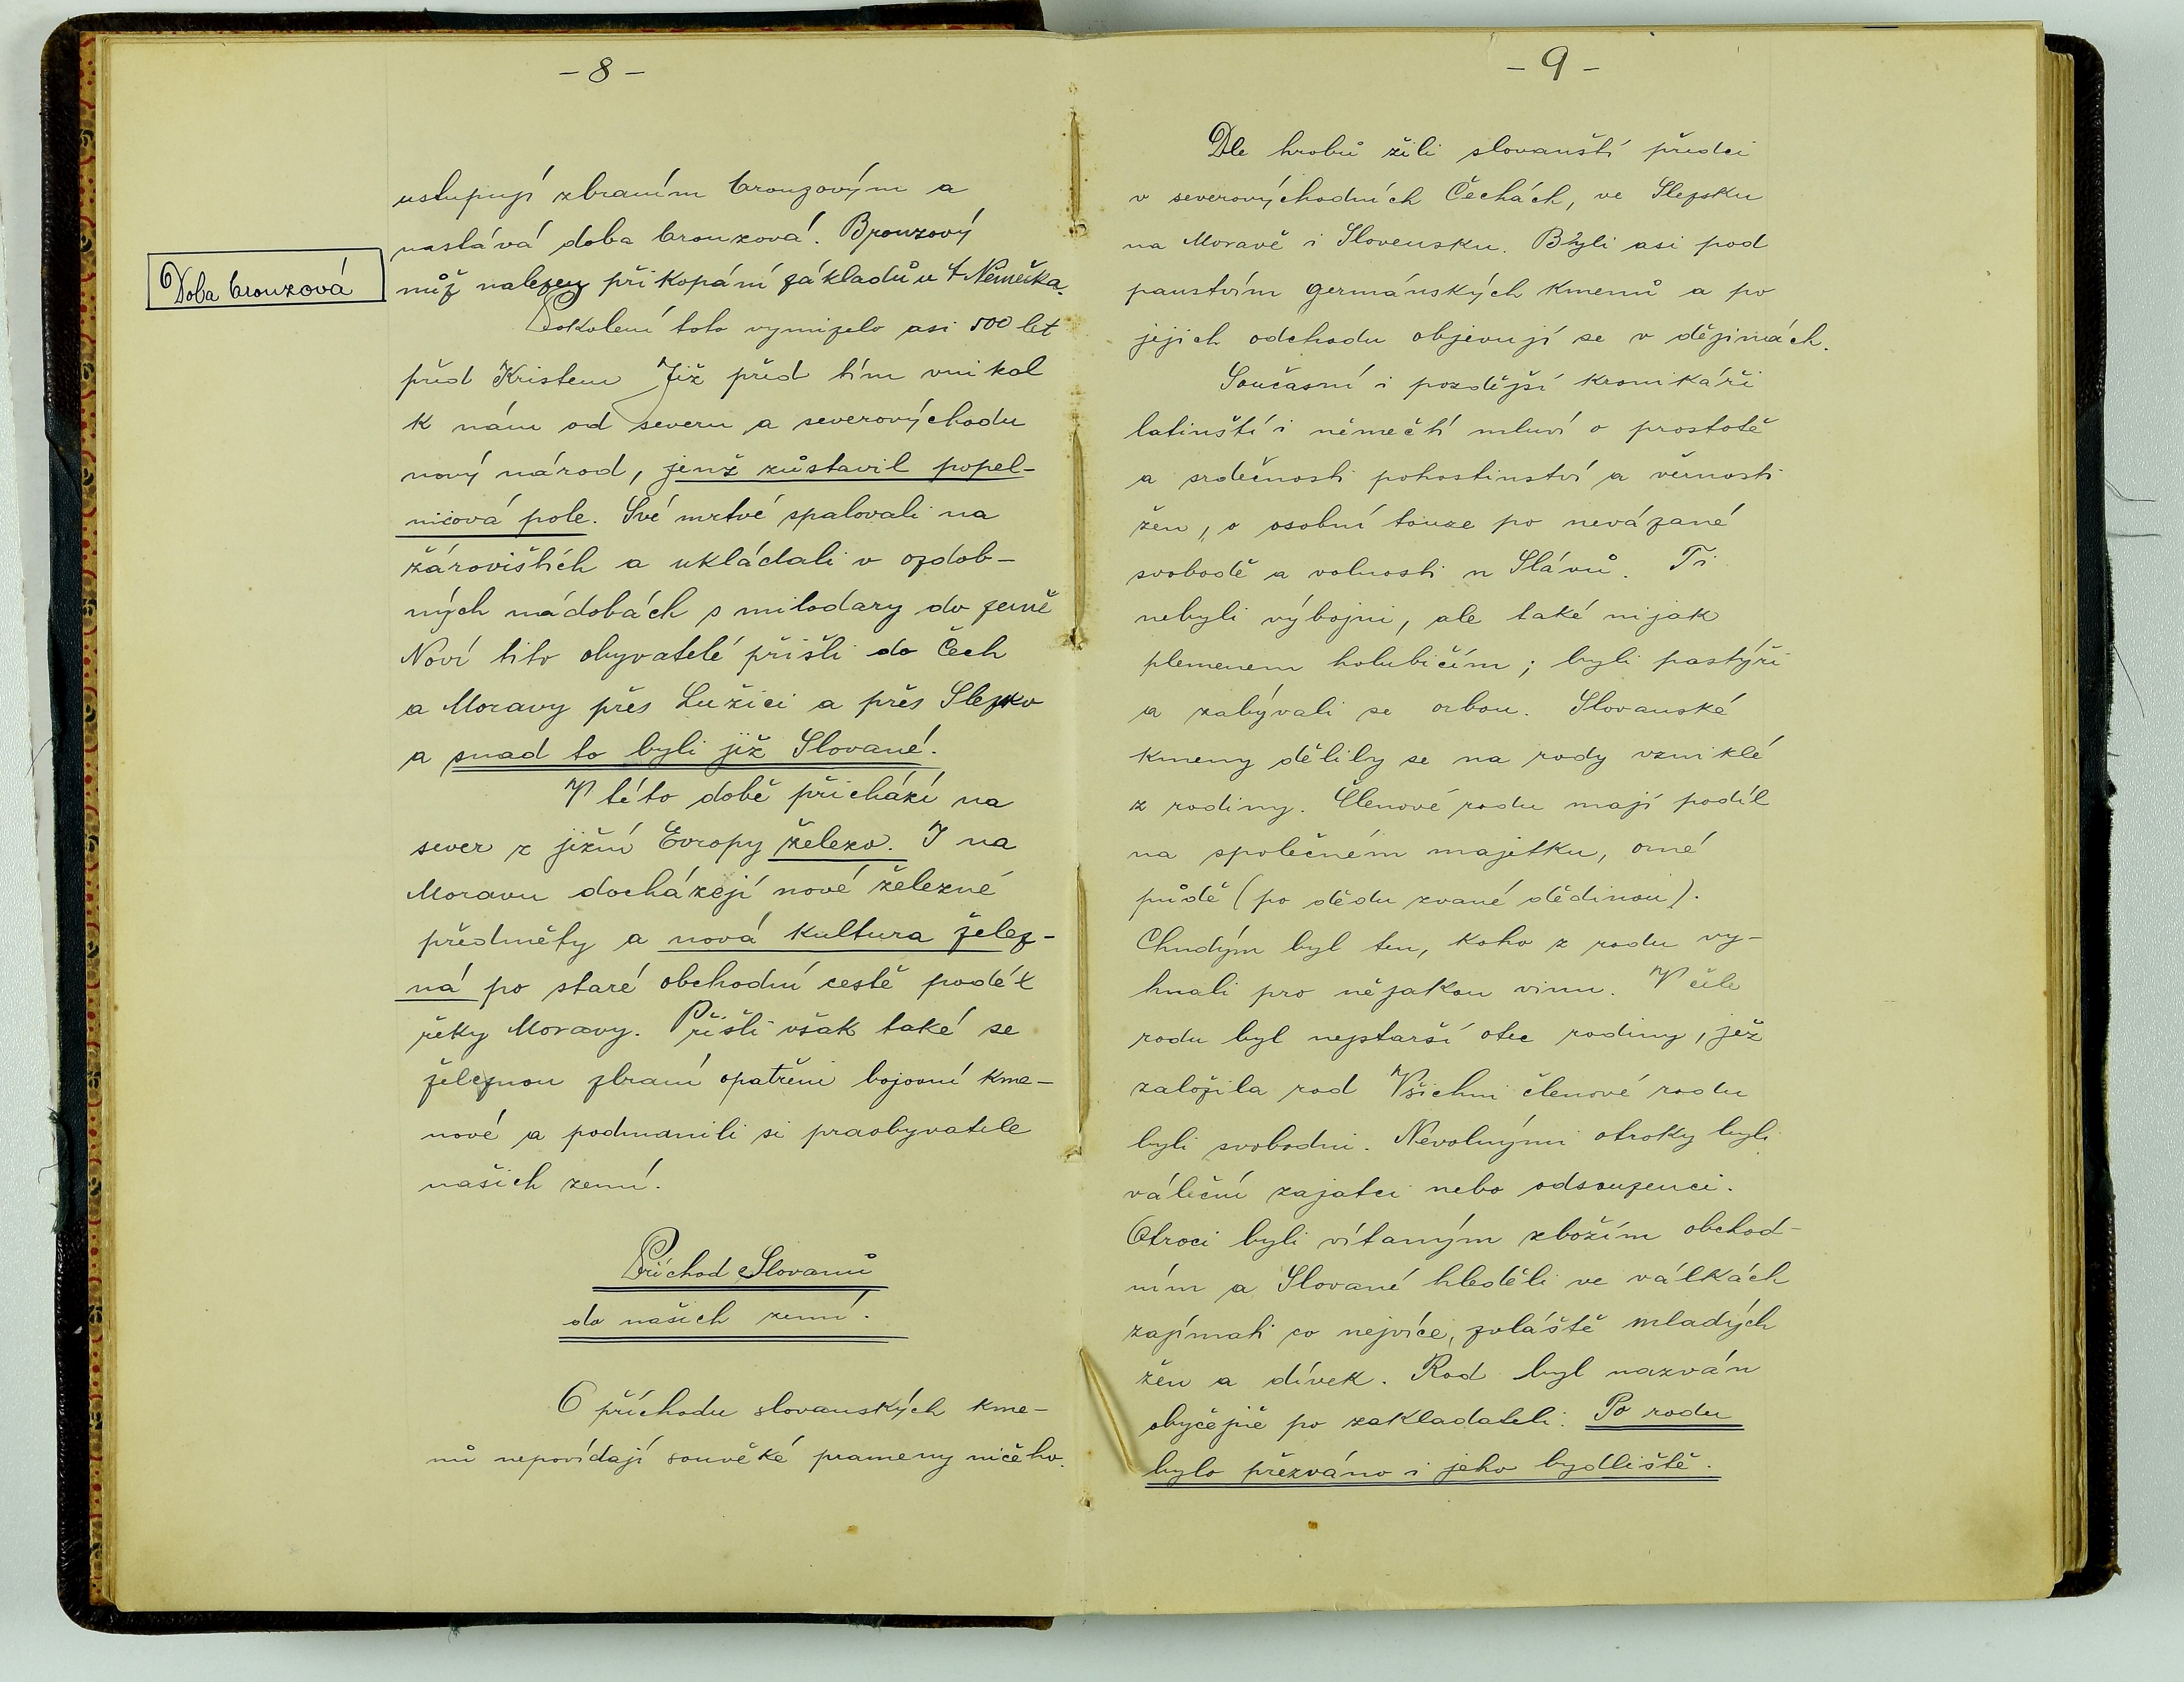 - 8 -
ustupují zbraním bronzovým a
nastává doba bronzová. Bronzový
Doba bronzová
nůž nalezen při kopání základů u † Němečka.
Pokolení toto vymizelo asi 500 let
před Kristem Již před tím vnikal
k nám od severu a severovýchodu
nový národ, jenž zůstavil popel-
nicová pole. Své mrtvé spalovali na
žárovištích a ukládali v ozdob-
ných nádobách s milodary do země
Noví tito obyvatelé přišli do Čech
a Moravy přes Lužici a přes Slezsko
a snad to byli již Slované.
V této době přichází na
sever z jižní Evropy železo. I na
Moravu docházejí nové železné
předměty a nová kultura želez-
ná po staré obchodní cestě podél
řeky Moravy. Přišli však také se
železnou zbraní opatřeni bojovní kme-
nové a podmanili si praobyvatele
našich zemí.
Příchod Slovanů
do našich zemí.
O příchodu slovanských kme-
nů nepovídají souvěké prameny ničeho.
- 9 -
Dle hrobů žili slovanští předci
v severovýchodních Čechách, ve Slezsku
na Moravě i Slovensku. Byli asi pod
panstvím germánských kmenů a po
jejich odchodu objevují se v dějinách.
Současní i pozdější kronikáři
latinští i němečtí mluví o prostotě
a srdečnosti pohostinství a věrnosti
žen, o osobní touze po nevázané
svobodě a volnosti u Slávů. Ti
nebyli výbojní, ale také nijak
plemenem holubičím; byli pastýři
a zabývali se orbou. Slovanské
kmeny dělily se na rody vzniklé
z rodiny. Členové rodu mají podíl
na společném majetku, orné
půdě (po dědu zvané dědinou).
Chudým byl ten, koho z rodu vy-
hnali pro nějakou vinu. V čele
rodu byl nejstarší otec rodiny, jež
založila rod Všichni členové rodu
byli svobodni. Nevolnými otroky byli
váleční zajatci nebo odsouzenci.
Otroci byli vítaným zbožím obchod-
ním a Slované hleděli ve válkách
zajímati co nejvíce, zvláště mladých
žen a dívek. Rod byl nazván
obyčejně po zakladateli. Po rodu
bylo přezváno i jeho bydliště.